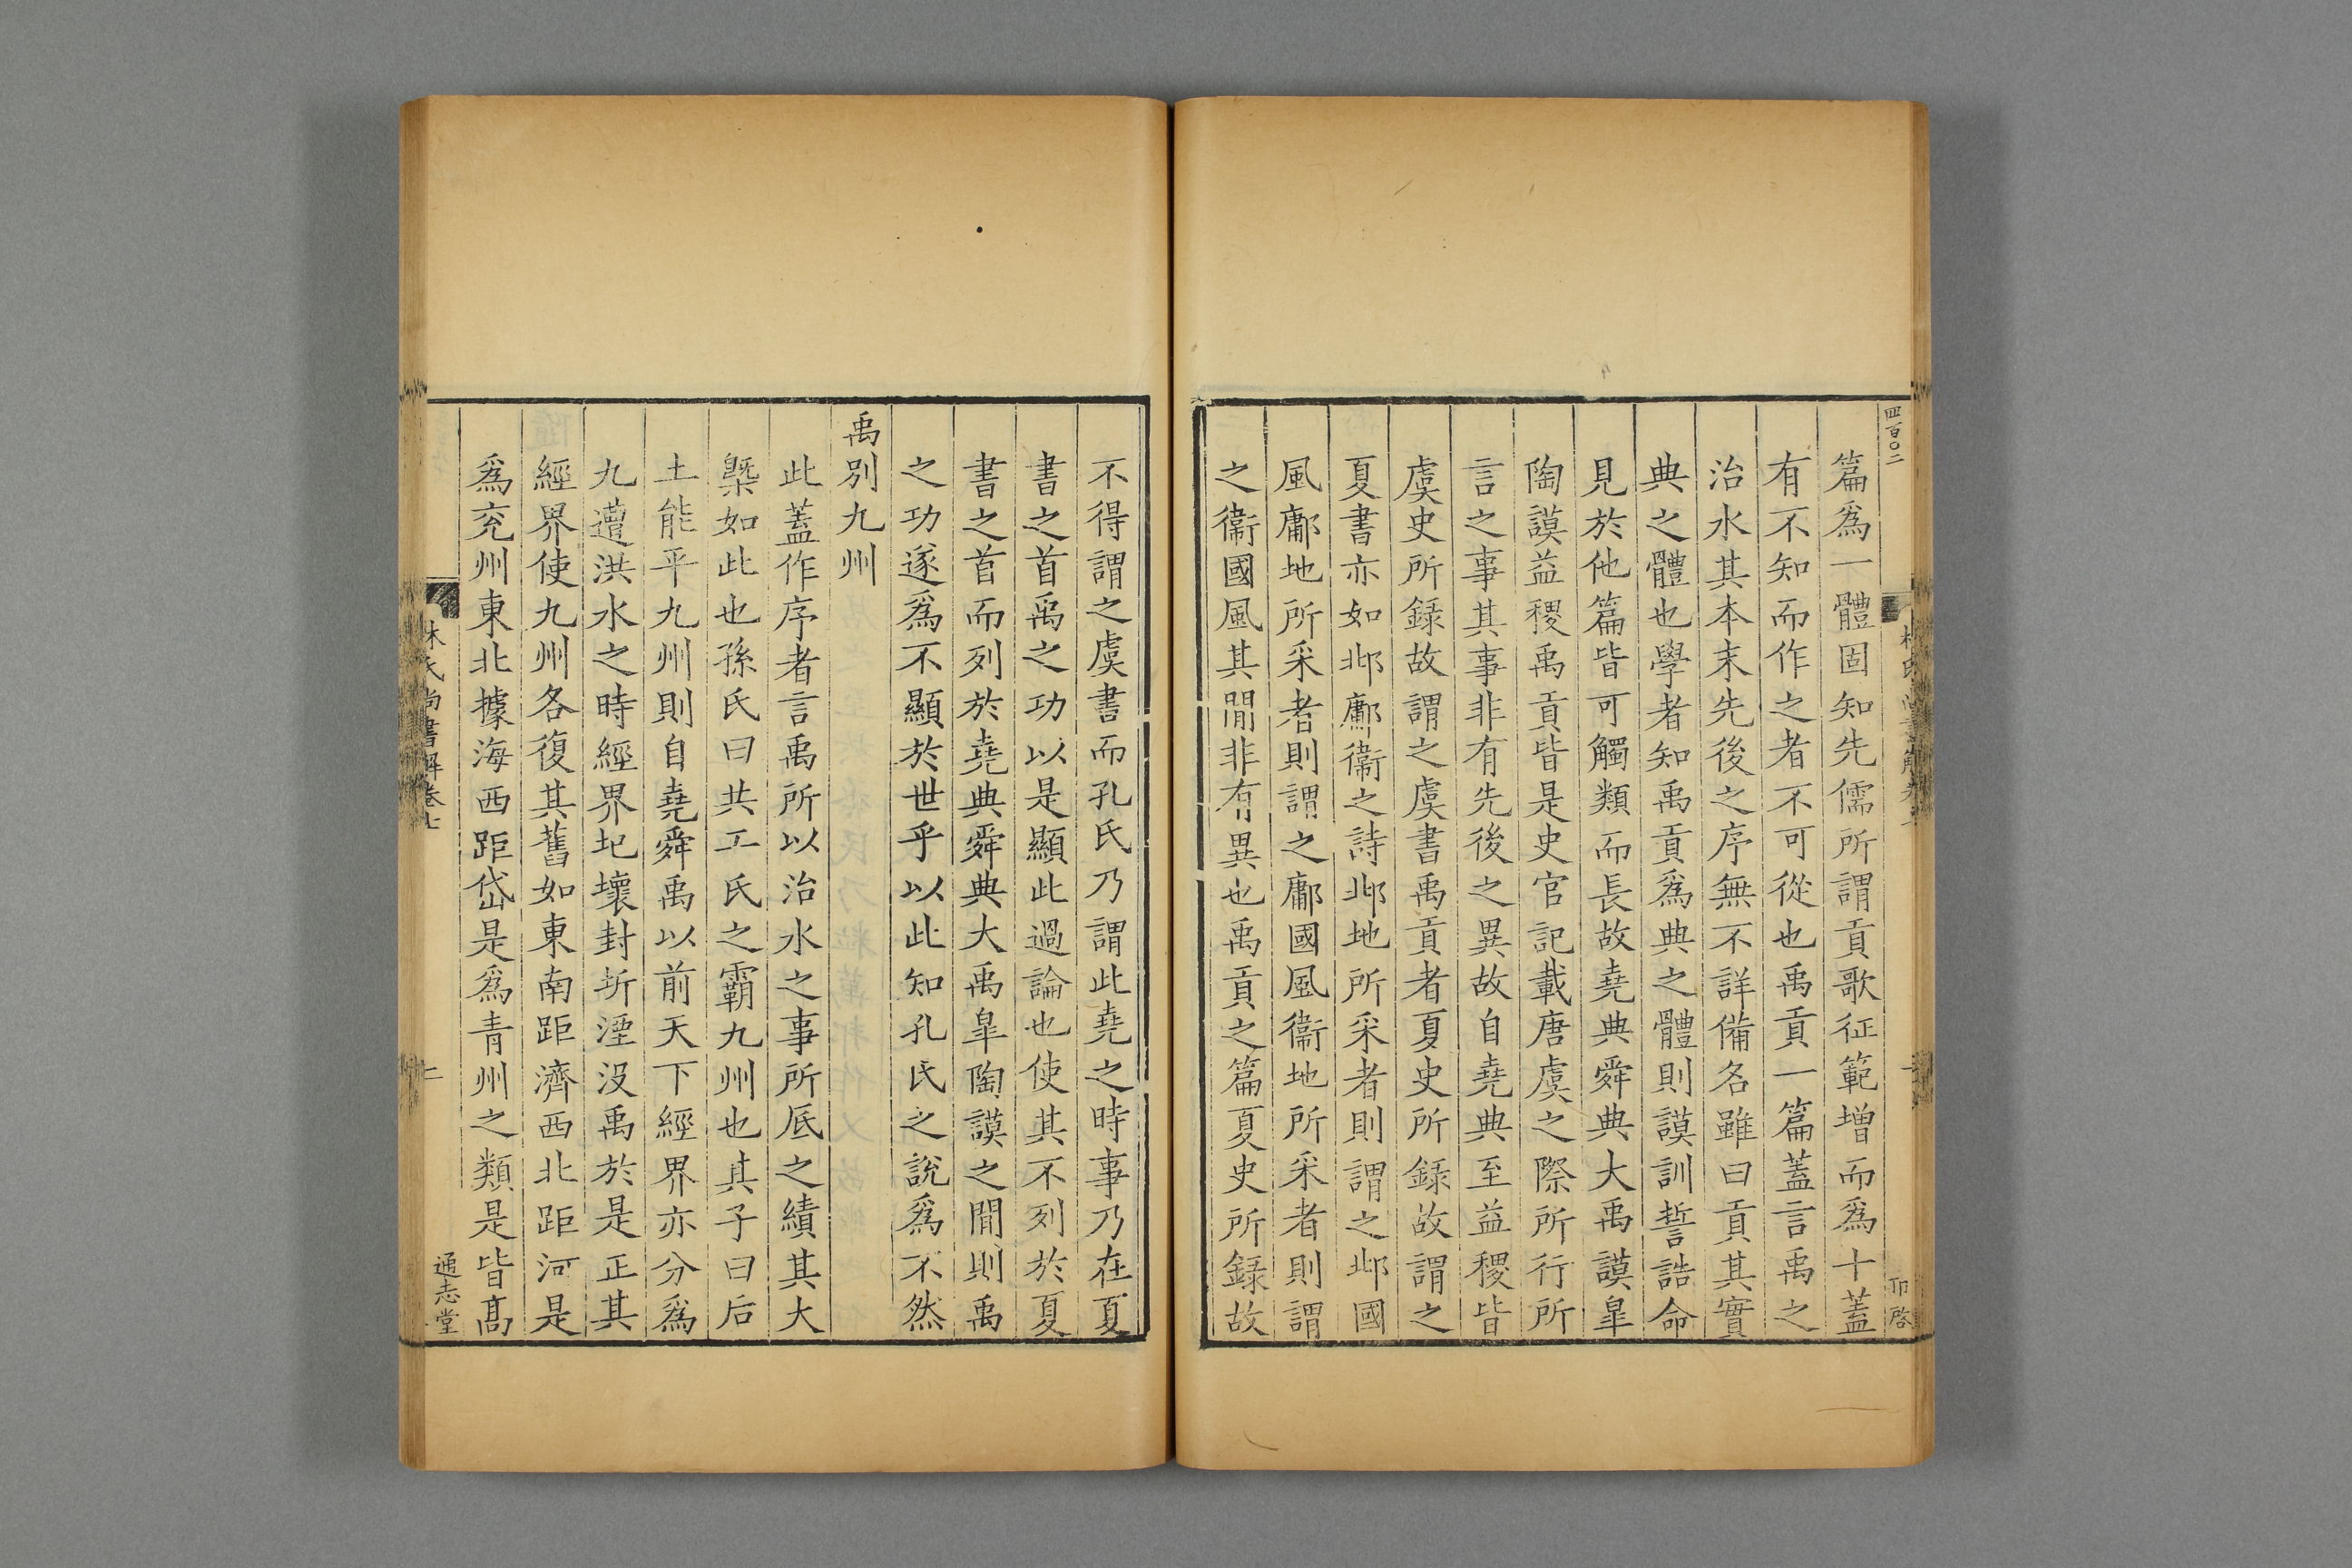 四百〇二
篇爲一體固知先儒所謂貢歌征範增而爲十蓋
有不知而作之者不可從也禹貢一篇蓋言禹之
治水其本末先後之序無不詳備名雖曰貢其實
典之體也學者知禹貢爲典之體則謨訓誓誥命
見於他篇皆可觸類而長故堯典舜典大禹謨皐
陶謨益稷禹貢皆是史官記載唐虞之際所行所
言之事其事非有先後之異故自堯典至益稷皆
虞史所録故謂之虞書禹貢者夏史所録故謂之
夏書亦如邶鄘衞之詩邶地所采者則謂之邶國
風鄘地所采者則謂之鄘國風衞地所采者則謂
之衞國風其閒非有異也禹貢之篇夏史所録故
不得謂之虞書而孔氏乃謂此堯之時事乃在夏
書之首禹之功以是顯此過論也使其不列於夏
書之首而列於堯典舜典大禹皐陶謨之閒則禹
之功遂爲不顯於世乎以此知孔氏之說爲不然
禹別九州
此蓋作序者言禹所以治水之事所厎之績其大
槩如此也孫氏曰共工氏之霸九州也其子曰后
土能平九州則自堯舜禹以前天下經界亦分爲
九遭洪水之時經界圮壞封圻湮没禹於是正其
經界使九州各復其舊如東南距濟西北距河是
爲兖州東北據海西距岱是爲青州之類是皆髙
林氏尚書解卷七
二
通志堂